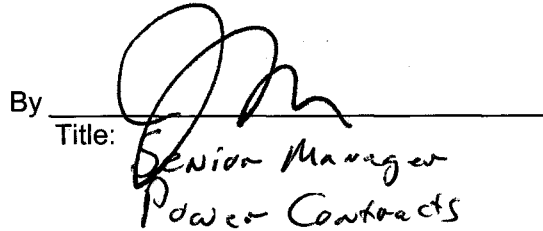 By
Title:
Senior Manager
Power Contracts